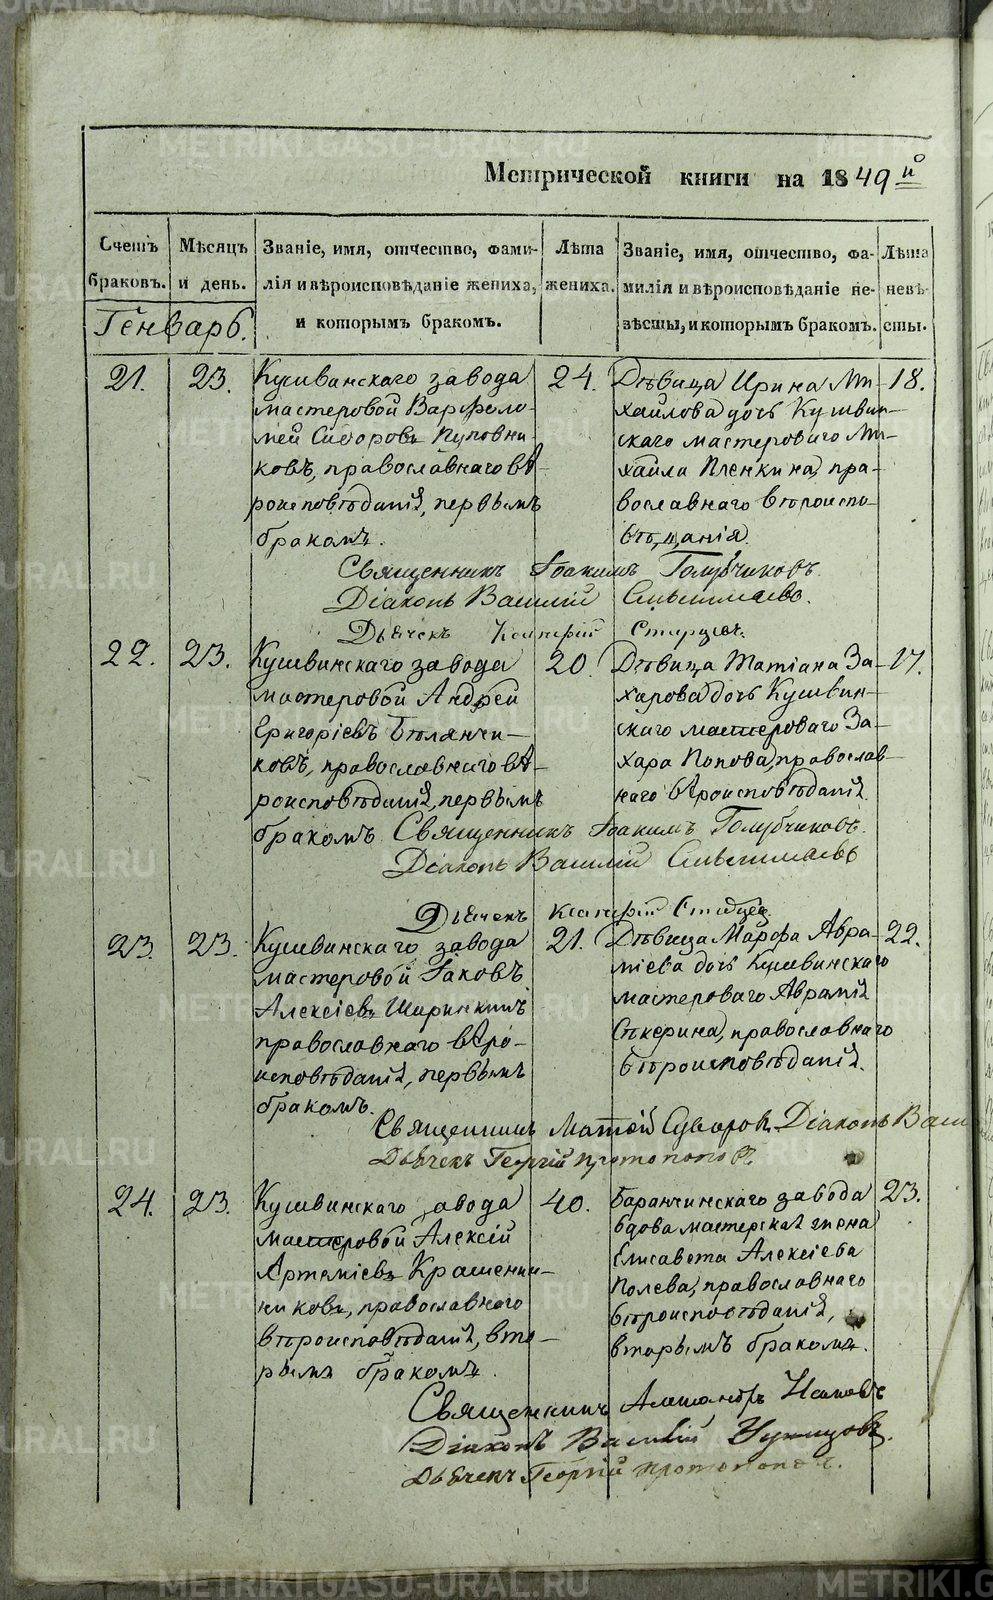 Метрической книги на 1849й
Счетъ браковъ.
Мѣсяцъ и день.
Званіе, имя, отчество, фами-
лія и вѣроисповѣданіе жениха,
и которымъ бракомъ.
Лѣта жениха.
Званіе, имя, отчество, фа-
милія и вѣроисповѣданіе не-
вѣсты, и которымъ бракомъ.
Лѣта невѣ-
сты.
Генварь.
21. 23.
Кушвинскаго завода
мастеровой Варфоло-
мей Сидоровъ Пуповни-
ковъ, православнаго вѣ-
роисповѣданія, первымъ
бракомъ.
24.
Дѣвица Ирина Ми-
хайлова дочь Кушвин-
скаго мастероваго Ми-
хаила Пленкина, пра-
вославнаго вѣроиспо-
вѣданія.
18.
Священникъ Іоакимъ Голубчиковъ.
Діаконъ Василій
Дьячекъ Старцевъ.
22. 23.
Кушвинскаго завода
мастеровой Андрей
Григоріевъ Бѣлянчи-
ковъ, православнаго вѣ-
роисповѣданія, первымъ
бракомъ.
20.
Дѣвица Татіана За-
харова дочь Кушвин-
скаго мастероваго За-
хара Попова, православ-
наго вѣроисповѣданія.
17.
Священникъ Іоакимъ Голубчиковъ.
Діаконъ Василій
Дьячекъ
23. 23.
Кушвинскаго завода
мастеровой Іаковъ
Алексіевъ Ширинкинъ
православнаго вѣро-
исповѣданія, первымъ
бракомъ.
21.
Дѣвица Марфа Авра-
міева дочь Кушвинскаго
мастероваго Аврамія
православнаго
вѣроисповѣданія.
22.
Священникъ Матѳій Суворовъ. Діаконъ Васи
Дьячекъ Георгій Протопоповъ.
24. 23.
Кушвинскаго завода
мастеровой Алексій
Артеміевъ Крашенин-
никовъ, православнаго
вѣроисповѣданія, вто-
рымъ бракомъ.
40.
Баранчинскаго завода
вдова мастерская жена
Елисавета Алексіева
Полева, православнаго
вѣроисповѣданія,
вторымъ бракомъ.
23.
Священникъ Александръ
Діаконъ Василій
Дьячекъ Георгій Протопоповъ.
METRIKI.GASO-URAL.RU